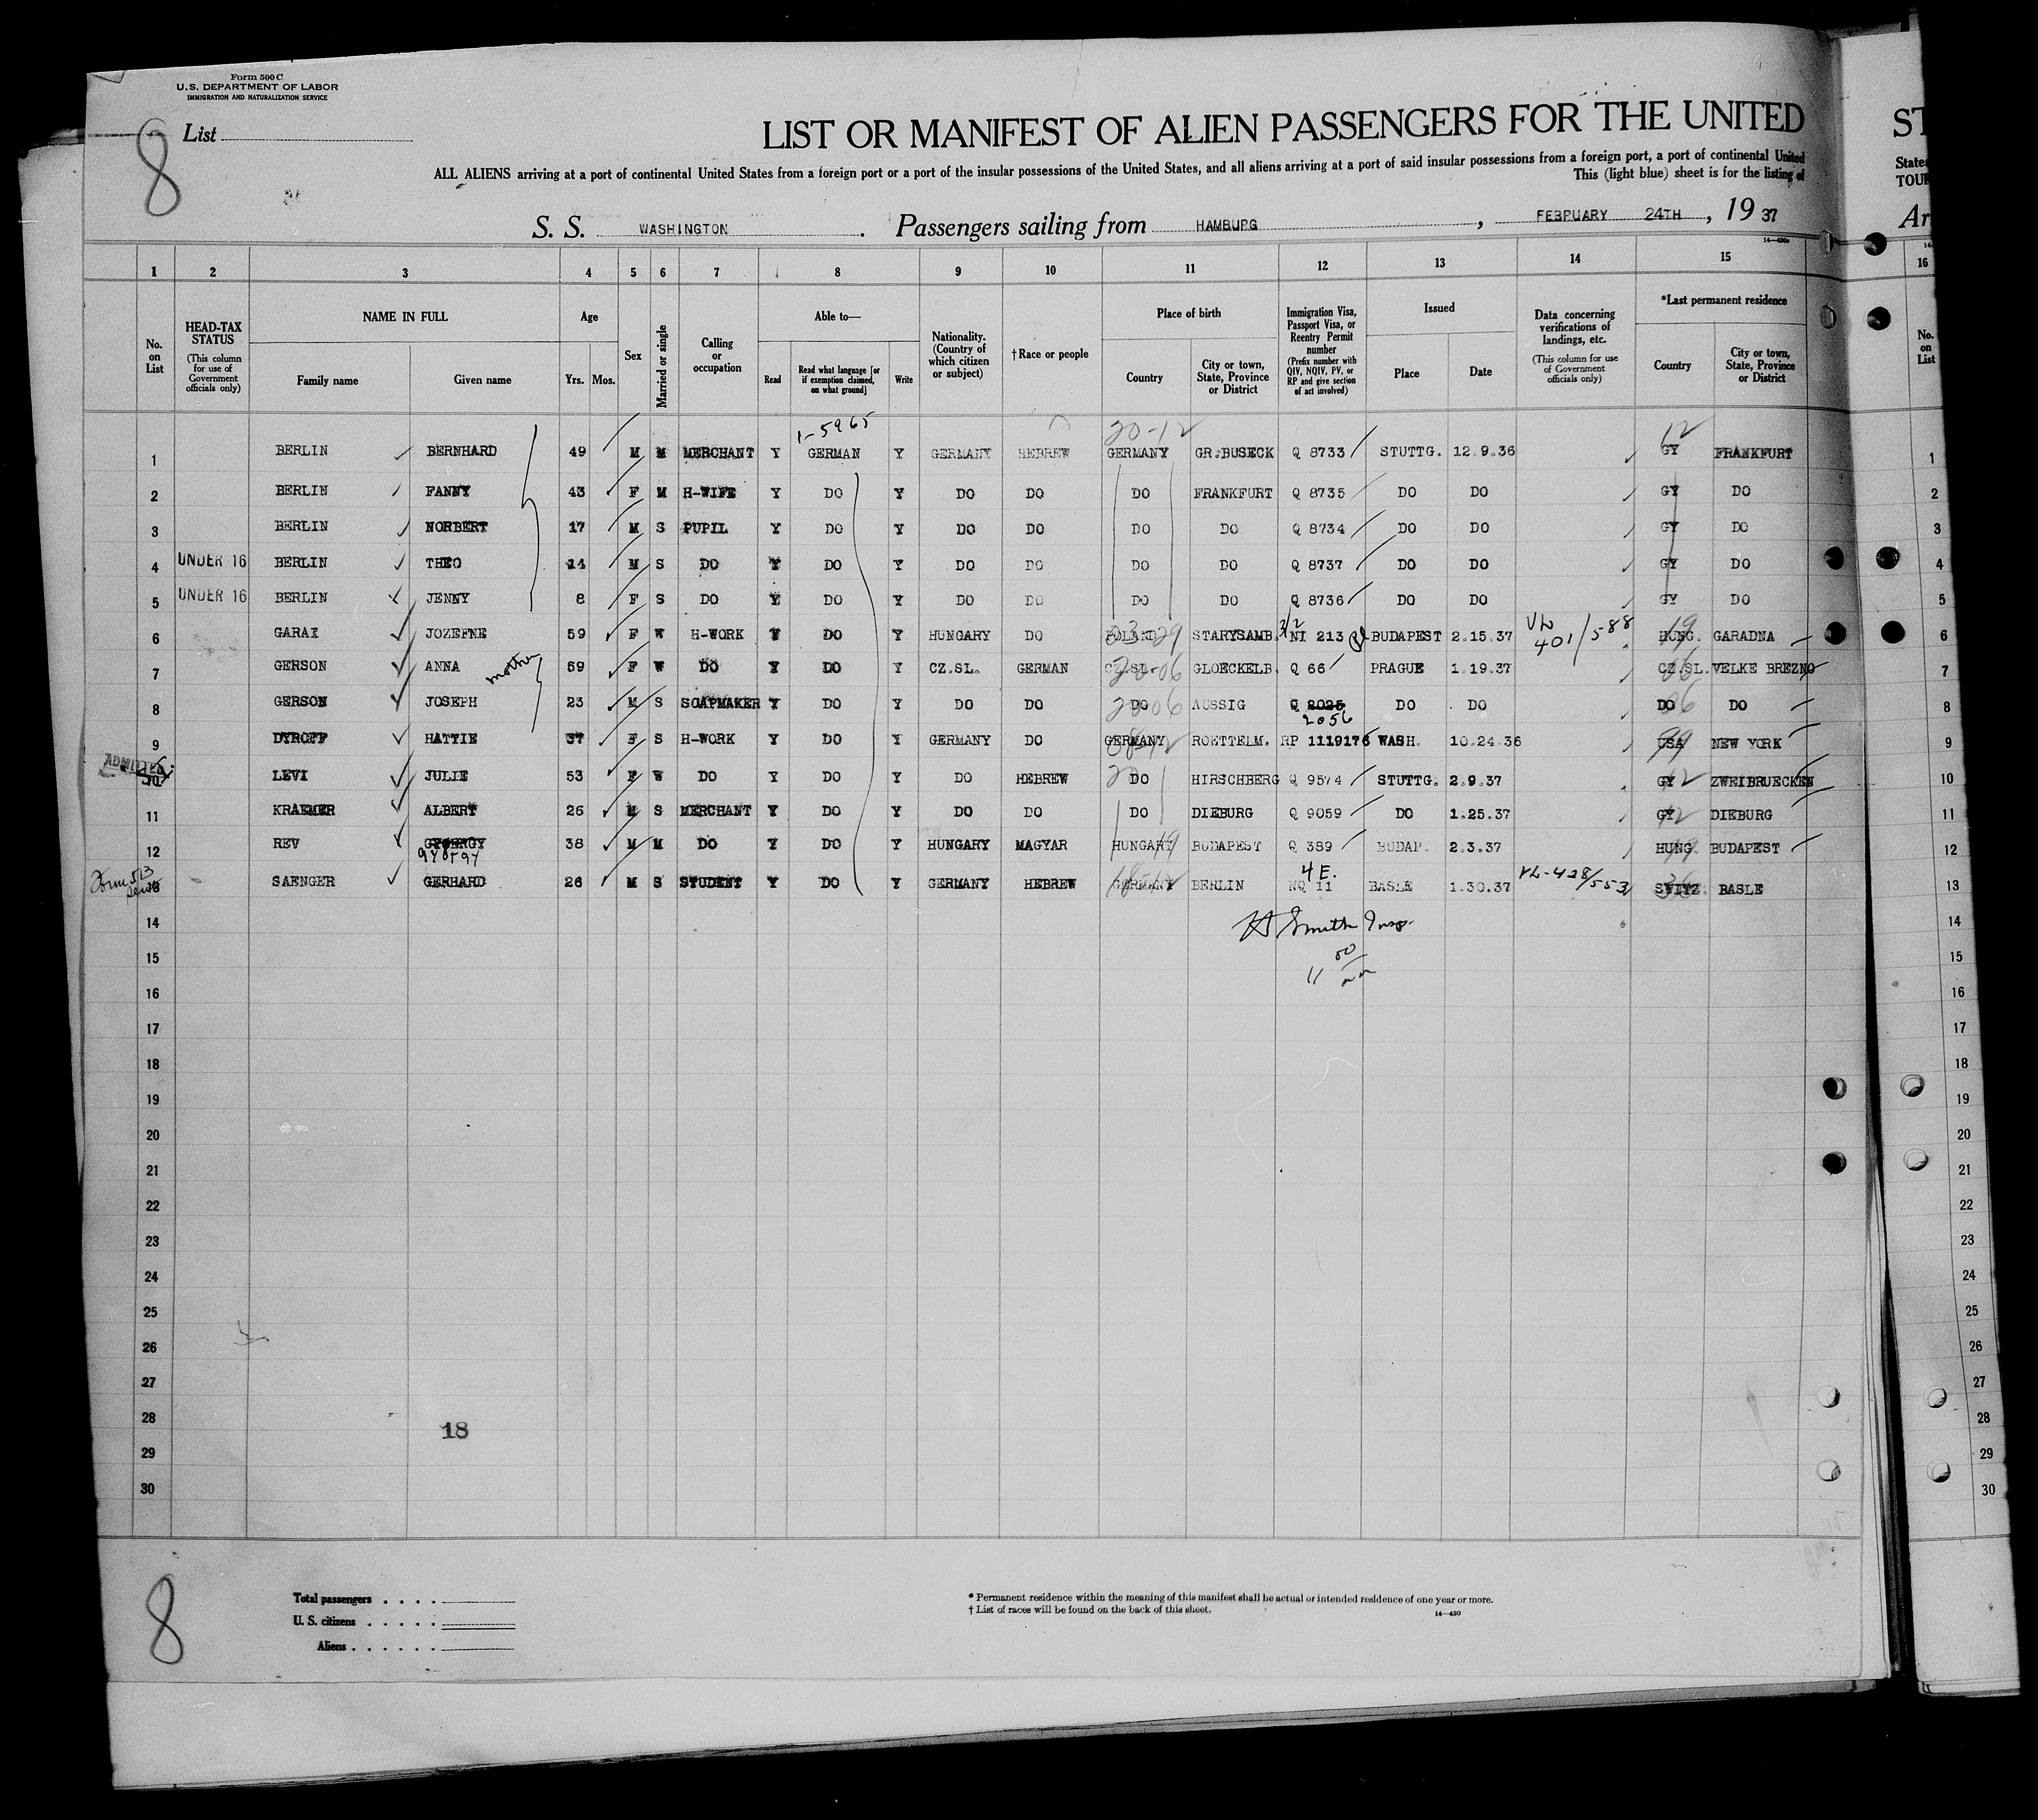 Form 500 C
U.S. DEPARTMENT OF LABOR
IMMIGRATION AND NATURALIZATION SERVICE
8
List
LIST OR MANIFEST OF ALIEN PASSENGERS FOR THE UNITED
ST
ALL ALIENS arriving at a port of continental United States from a foreign port or a port of the insular possessions of the United States, and all aliens arriving at a port of said insular possessions from a foreign port, a port of continental United
States
This (light blue) sheet is for the listing of
TOUR
S. S. WASHINGTON. Passengers sailing from HAMBURG, FEBRUARY 24TH, 1937
Ar
14—430a
1 2 3 4 5 6 7 8 9 10 11 12 13 14 15 16
No. on List
HEAD-TAX STATUS (This column for use of Government officials only)
NAME IN FULL Family name Given name
Age Yrs. Mos.
Sex
Married or single
Calling or occupation
Able to— Read Read what language [or if exemption claimed, on what ground] Write
Nationality. (Country of which citizen or subject)
†Race or people
Place of birth Country City or town, State, Province or District
Immigration Visa, Passport Visa, or Reentry Permit number (Prefix number with QIV, NQIV, PV, or RP and give section of act involved)
Issued Place Date
Data concerning verifications of landings, etc. (This column for use of Government officials only)
*Last permanent residence Country City or town, State, Province or District
No. on List
1-5965 20-12 12
1 BERLIN BERNHARD 49 M M MERCHANT Y GERMAN Y GERMANY HEBREW GERMANY GR.BUSECK Q 8733 STUTTG. 12.9.36 GY FRANKFURT 1
2 BERLIN FANNY 43 F M H-WIFE Y DO Y DO DO DO FRANKFURT Q 8735 DO DO GY DO 2
3 BERLIN NORBERT 17 M S PUPIL Y DO Y DO DO DO DO Q 8734 DO DO GY DO 3
4 UNDER 16 BERLIN THEO 14 M S DO Y DO Y DO DO DO DO Q 8737 DO DO GY DO 4
5 UNDER 16 BERLIN JENNY 8 F S DO Y DO Y DO DO DO DO Q 8736 DO DO GY DO 5
6 GARAI JOZEFNE 59 F W H-WORK Y DO Y HUNGARY DO POLAND STARYSAMB. 3/2 NI 213 BUDAPEST 2.15.37 VL 401/588 HUNG. 19 GARADNA 6
7 GERSON ANNA mother 59 F W DO Y DO Y CZ.SL. GERMAN CZ.SL. GLOECKELB. Q 66 PRAGUE 1.19.37 CZ.SL. VELKE BREZNO 7
8 GERSON JOSEPH 23 M S SOAPMAKER Y DO Y DO DO DO AUSSIG Q 2025 2056 DO DO DO DO 8
9 DYROFF HATTIE 37 F S H-WORK Y DO Y GERMANY DO GERMANY ROETTELM. RP 1119176 WASH. 10.24.36 USA 99 NEW YORK 9
ADMITTED
10 LEVI JULIE 53 F W DO Y DO Y DO HEBREW DO HIRSCHBERG Q 9574 STUTTG. 2.9.37 GY 12 ZWEIBRUECKEN 10
11 KRAEMER ALBERT 26 M S MERCHANT Y DO Y DO DO DO DIEBURG Q 9059 DO 1.25.37 GY 12 DIEBURG 11
12 REV GYOERGY 38 M M DO Y DO Y HUNGARY MAGYAR HUNGARY 19 BUDAPEST Q 389 BUDAP. 2.3.37 HUNG. 19 BUDAPEST 12
György
Form 513
13 SAENGER GERHARD 26 M S STUDENT Y DO Y GERMANY HEBREW GERMANY BERLIN 4 E. NQ 11 BASLE 1.30.37 VL-428/553 SWITZ. 36 BASLE 13
14 Smith Insp. 14
15 15
11 50
16 16
17 17
18 18
19 19
20 20
21 21
22 22
23 23
24 24
25 25
26 26
27 27
28 18 28
29 29
30 30
8
Total passengers
U. S. citizens
Aliens
* Permanent residence within the meaning of this manifest shall be actual or intended residence of one year or more.
† List of races will be found on the back of this sheet.
14—430